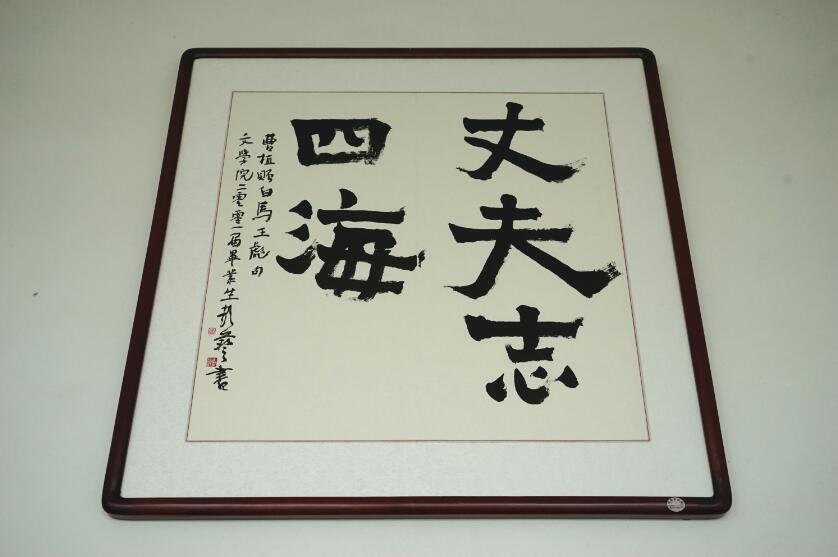 丈夫志
四海
曹植赠白馬王彪句
文學院二零零一届畢業生彭藝書